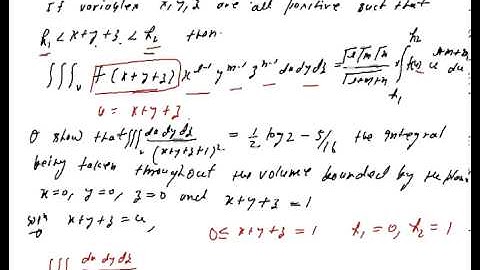 If variables x, y, z are all positive such that
h₁ < x+y+z < h₂ then
∭ᵥ f(x+y+z) x^{l-1} y^{m-1} z^{n-1} dx dy dz = (Γl Γm Γn)/(Γl+m+n) × ∫_{h₁}^{h₂} f(u) u^{l+m+n-1} du
u = x+y+z
show that ∭ᵥ dx dy dz/(x+y+z+1)² = 1/2 log 2 - 5/16 the integral
being taken throughout the volume bounded by the plane
x=0, y=0, z=0 and x+y+z = 1
solⁿ x+y+z = u, 0 ≤ x+y+z = 1 h₁ = 0, h₂ = 1
∭ dx dy dz